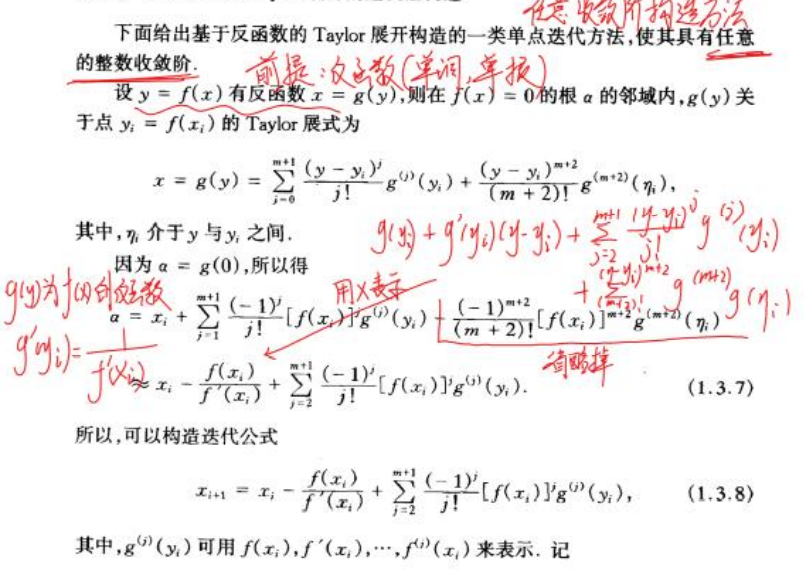 任意收敛阶构造方法
下面给出基于反函数的 Taylor 展开构造的一类单点迭代方法,使其具有任意
的整数收敛阶.
前提:反函数(单调,单根)
设 y = f(x) 有反函数 x = g(y),则在 f(x) = 0 的根 α 的邻域内,g(y) 关
于点 yᵢ = f(xᵢ) 的 Taylor 展式为
x = g(y) = ∑_{j=0}^{m+1} \frac{(y - y_i)^j}{j!} g^{(j)}(y_i) + \frac{(y - y_i)^{m+2}}{(m+2)!} g^{(m+2)}(η_i),
其中,ηᵢ 介于 y 与 yᵢ 之间.
g(y_i) + g'(y_i)(y-y_i) + ∑_{j=2}^{m+1} \frac{(y-y_i)^j}{j!} g^{(j)}(y_i)
+ \frac{(y-y_i)^{m+2}}{(m+2)!} g^{(m+2)} g(η_i)
因为 α = g(0),所以得
g(y)为f(x)的反函数
用x表示
α = x_i + ∑_{j=1}^{m+1} \frac{(-1)^j}{j!} [f(x_i)]^j g^{(j)}(y_i) + \frac{(-1)^{m+2}}{(m+2)!} [f(x_i)]^{m+2} g^{(m+2)}(η_i)
g'(y_i) = \frac{1}{f'(x_i)}
省略掉
≈ x_i - \frac{f(x_i)}{f'(x_i)} + ∑_{j=2}^{m+1} \frac{(-1)^j}{j!} [f(x_i)]^j g^{(j)}(y_i). (1.3.7)
所以,可以构造迭代公式
x_{i+1} = x_i - \frac{f(x_i)}{f'(x_i)} + ∑_{j=2}^{m+1} \frac{(-1)^j}{j!} [f(x_i)]^j g^{(j)}(y_i), (1.3.8)
其中,g^{(j)}(y_i) 可用 f(x_i),f'(x_i),⋯,f^{(j)}(x_i) 来表示. 记